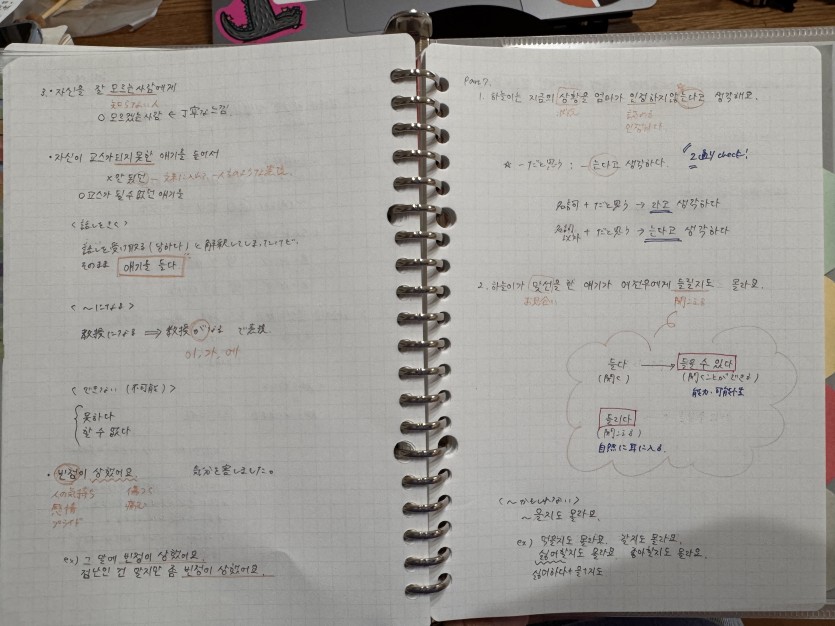 3. 자신을 잘 모르는 사람에게
知らない人
○ 모르겠는 사람 ← 丁寧な느낌.
• 자신이 교수가 되지 못한 얘기를 들어서
×
○ 교수가 될 수 없던 얘기를
<話しをきく>
話しを受け取る(당하다)と解釈してしまっていたが、
そのまま 얘기를 듣다
<~になる>
教授になる ⇒ 教授がなる で直接
이/가, 에
<できない (不可能)>
못하다
할 수 없다
• 빈정이 상했어요. 気分を害しました。
人の気持ち 傷つく
感情 痛む
プライド
ex) 그 말에 빈정이 상했어요.
점난인 건 알지만 좀 빈정이 상했어요.
Part 7.
1. 하늘이는 지금의 상황을 엄마가 인정하지 않는다고 생각해요.
状況 認める
인정하다
☆ -だと思う : -는다고 생각하다. 2通り check!
名詞 + だと思う → 라고 생각하다
名詞以外 + だと思う → 는다고 생각하다
2. 하늘이가 맞선을 한 얘기가 여진우에게 들릴지도 몰라요.
お見合い 聞こえる
듣다 → 들을 수 있다
(聞く) (聞くことができる)
能力・可能性
들리다
(聞こえる)
自然に耳に入る.
<~かもしれない>
~을지도 몰라요.
ex) 먹을지도 몰라요. 갈지도 몰라요.
싫어할지도 몰라요 좋아할지도 몰라요.
싫어하다+을지도